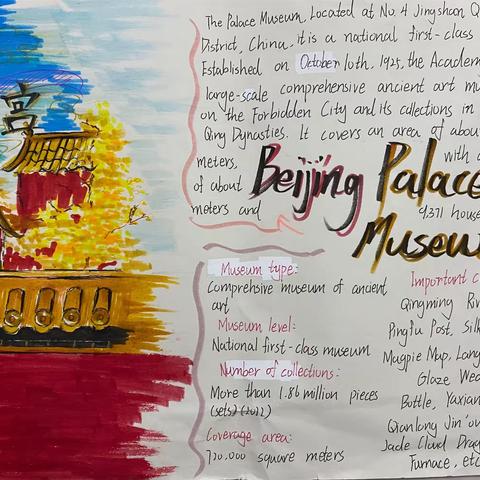 The Palace Museum, Located at No. 4 Jingshan Q
District, China, it is a national first-class
Established on October 10th, 1925, the Academ
large-scale comprehensive ancient art mu
on the Forbidden City and its cellections in
Qing Dynasties. It covers an area of abou
meters, with a
of about
meters and 9,371 house
Beijing Palace
Museum
Museum type:
Comprehsive museum of ancient
art
Museum level:
National first-class museum
Number of collections:
More than 1.86 million pieces
(sets) (2022)
Coverage area:
720,000 square meters
Important c
Qingming Riv
Pingfu Post, Silk
Magpie Map, Lang
Glaze, Wea
Bottle, Yaxian
Qianlong Jin'ou
Jade Cloud Drag
Furnace, etc